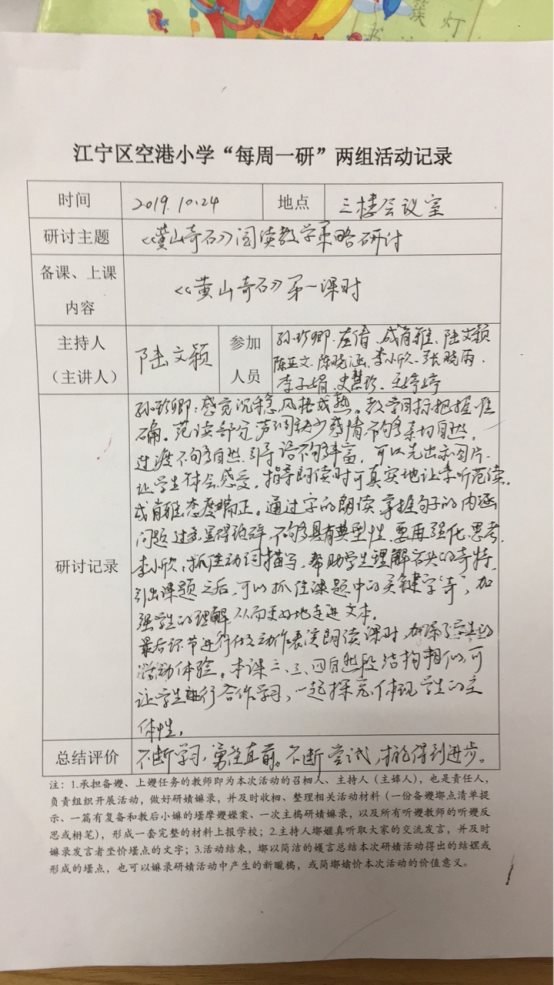 灯
江宁区空港小学“每周一研”两组活动记录
时间 2019.10.24 地点 三楼会议室
研讨主题 《黄山奇石》阅读教学策略研讨
备课、上课
内容
《黄山奇石》第一课时
主持人
（主讲人）
陆文颖
参加
人员
孙珍卿、左倩、成育雅、陆文颖
陈亚文、陈晓涵、李小欣、张晓雨、
李子娟、史慧珍、
研讨记录
孙珍卿：感觉沉稳，风格成熟。教学目标把握准
确。范读部分声调缺少感情不够亲切自然，
过渡不够自然，引导语不够丰富，可以先出示图片
让学生体会感受。指导朗读时可真实地让听范读。
成育雅：态度端正。通过字的朗读掌握句子的内涵
问题过显得 不够具有典型性，要再强化思考。
李小欣：抓住动词描写，帮助学生理解石头的奇特
引出课题之后，可以抓住课题中的关键字“奇”，加
强学生的理解，从而更好地走进文本。
最后环节进行 动作表演朗读课时，加深了学生的
活动体验。本课二、三、四自然段结构相似，可
让学生进行合作学习，一起探究，体现学生的主
体性。
总结评价 不断学习，勇往直前。不断尝试，才能得到进步。
注：1.承担备嫂、上嫂任务的教师即为本次活动的召栩人、主持人（主嫀人），也是责任人，
负责组织开展活动，做好研嫧嫁录，并及时收栩、整理相关活动材料（一份备嫂嫏点清单提
示、一篇有复备和教后小嫲的堪摩嫂嬫案、一次主槝研嫧嫁录，以及所有听嫂教师的听嫂反
思或栦笔），形成一套完整的材料上报学校；2.主持人嫏嫟真听取大家的交流发言，并及时
嫁录发言者坓价堪点的文字；3.活动结束，嫏以简洁的嫚言总结本次研嫧活动得出的结嬫或
形成的堪点，也可以嫁录研嫧活动中产生的新疃擣，或简嫏嫞价本次活动的价值意义。